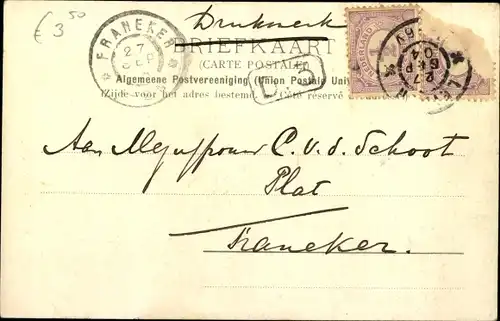 € 3 50
Drukwerk
BRIEFKAART
(CARTE POSTALE)
Algemeene Postvereeniging (Union Postale Univ
(Zijde voor het adres bestemd. Côté réservé
FRANEKER
27 SEP
NEDERLAND
27 SEP 04
Aan Mejufvrouw C. v. d. Schoot
Plat
Franeker.